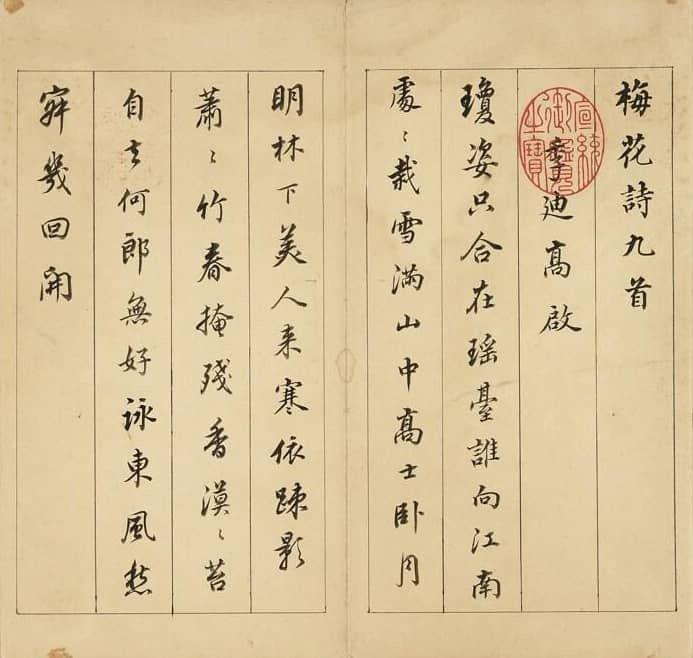 梅花詩九首
宣統御覽之寶
季迪高啟
瓊姿只合在瑤臺誰向江南
處〻栽雪滿山中高士臥月
明林下美人来寒依踈影
蕭〻竹春掩殘香漠〻苔
自去何郎無好詠東風愁
寂幾回開